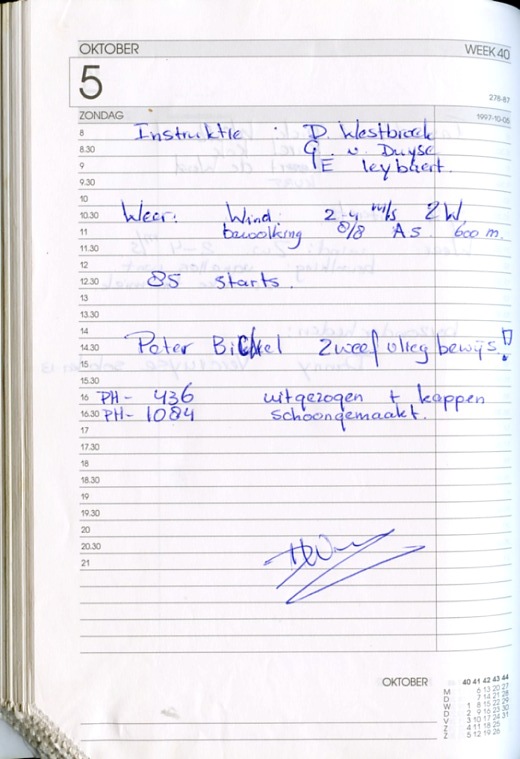 OKTOBER WEEK 40
5
278-87
ZONDAG 1997-10-05
8 Instruktie : D. Westbroek
8.30 G. v. Duyse
9 E Leybaert.
9.30
10
10.30 Weer: Wind: 2-4 m/s ZW.
11 bewolking 8/8 AS 600 m.
11.30
12
12.30 85 starts.
13
13.30
14
14.30 Peter Bickel zweefvliegbewijs!
15
15.30
16 PH- 436 uitgezogen + kappen
16.30 PH- 1084 schoongemaakt.
17
17.30
18
18.30
19
19.30
20
20.30
21
OKTOBER 40 41 42 43 44
M 6 13 20 27
D 7 14 21 28
W 1 8 15 22 29
D 2 9 16 23 30
V 3 10 17 24 31
Z 4 11 18 25
Z 5 12 19 26